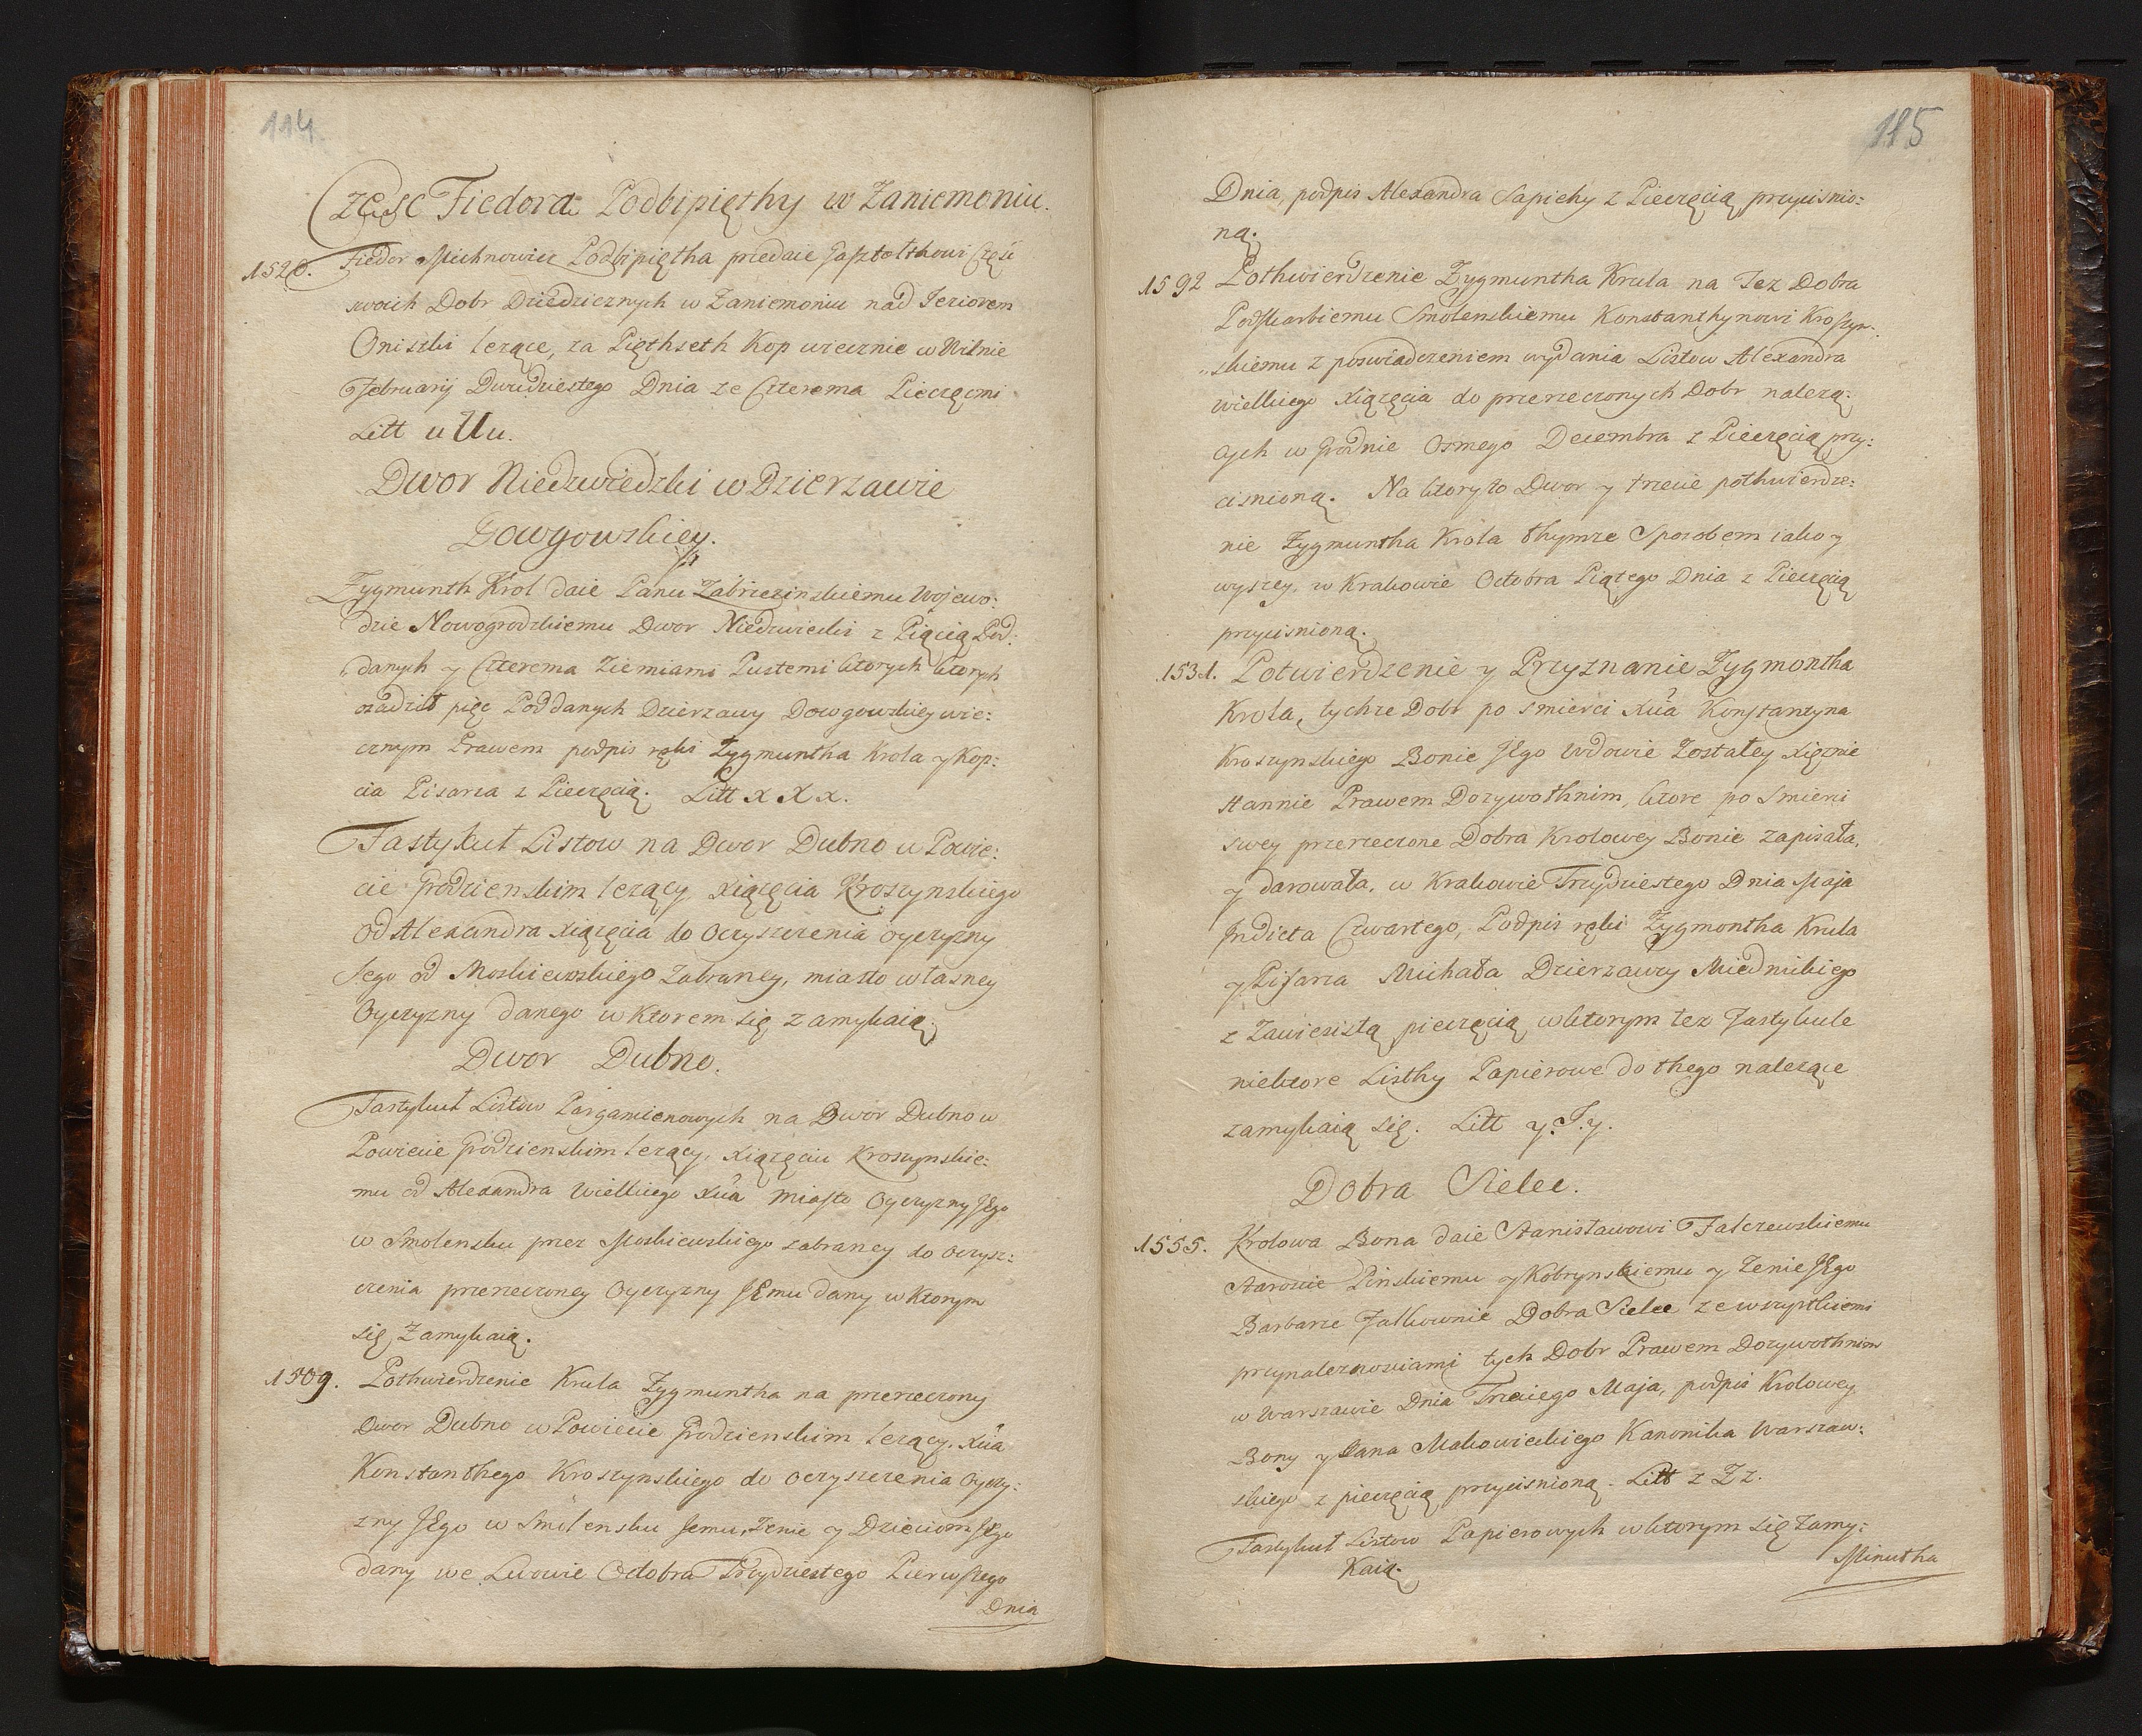 114
Częsc Fiedora Podbipięthy w Zaniemoniu.
1520. Fiedor Michnowicz Podbipiętha przedaie Gasztolthowi Część
swoich Dobr Dziedzicznych w Zaniemoniu nad Jeziorem
Oniszki lezące, za Pięthseth Kop wiecznie w Wilnie
Februarij Dwudziestego Dnia ze Czterema Pieczęcmi
Litt u Uu.
Dwor Niedzwiedzki w Dzierzawie
Dowgowskiey.
Zygmunth Krol daie Panu Zabrzezinskiemu Wojewo:
dzie Nowogrodzkiemu Dwor Niedzwiecki z Pięcią Pod:
danych y Czterema Ziemiami Pustemi ktorych ktorych
osadził pięc Poddanych Dzierzawy Dowgowskiey wie:
cznym Prawem podpis ręki Zygmuntha Krola y Kop:
cia Pisarza z Pieczęcią. Litt x X x.
Fastykuł Listow na Dwor Dubno w Powie:
cie Grodzienskim lezący Xiązęcia Kroszynskiego
od Alexandra Xiązęcia do oczyszczenia oyczyzny
Jego od Moskiewskiego Zabraney, miasto własney
Oyczyzny danego w Ktorem się zamykaią.
Dwor Dubno.
Fastykuł Listow Pargamienowych na Dwor Dubno w
Powiecie Grodzienskim lezący, Xiązęciu Kroszynskie:
mu od Alexandra Wielkiego Xcia miasto Oyczyzny JEgo
w Smolensku przez Moskiewskiego zabraney do oczysz:
czenia przerzeczoney Oyczyzny JEmu dany w Ktorym
się Zamykaią.
1509. Pothwierdzenie Krula Zygmuntha na przerzeczony
Dwor Dubno w Powiecie Grodzienskim lezący. Xcia
Konstanthego Kroszynskiego do oczyszczenia Oyczy:
zny JEgo w Smolensku Jemu, Zenie y Dzieciom JEgo
dany we Lwowie Octobra Trzydziestego Pierwszego
Dnia
115
Dnia, podpis Alexandra Sapiehy z Pieczęcią przycisnio:
ną.
1592 Pothwierdzenie Zygmuntha Krula na Tez Dobra
Podskarbiemu Smolenskiemu Konstanthynowi Kroszyn:
skiemu z poswiadczeniem wydania Listow Alexandra
Wielkiego Xiązęcia do przerzeczonych Dobr nalezą:
cych w Grodnie Osmego Decembra z Pieczęcią przy:
cisnioną. Na ktory to Dwor y trzecie pothwierdze:
nie Zygmuntha Krola thymze Sposobem iako y
wyszey, w Krakowie Octobra Piątego Dnia z Pieczęcią
przycisnioną.
1531. Potwierdzenie y Przyznanie Zygmontha
Krola, tychze Dobr po smierci Xcia Konstantyna
Kroszynskiego Bonie JEgo Wdowie Zostałey Xięznie
Hannie Prawem Dozywothnim, ktore po Smierci
swey przerzeczone Dobra Krolowey Bonie zapisała,
y darowała, w Krakowie Trzydziestego Dnia Maja
Indicta Czwartego, Podpis ręki Zygmontha Krula
y Pisarza Michała Dzierzawcy Miednickiego
z Zawiesistą pieczęcią w ktorym tez Fastykule
niektore Listhy Papierowe do thego nalezące
zamykaią się. Litt y. Y. y.
Dobra Sielec.
1555. Krolowa Bona daie Stanisławowi Falczewskiemu
Staroscie Pinskiemu y Kobrynskiemu y Zenie JEgo
Barbarze Jalkownie Dobra Sielec ze wszystkiemi
przynalezносiami tych Dobr Prawem Dozywothnim
w Warszawie Dnia Trzeciego Maja, podpis Krolowey
Bony y Jana Makowieckiego Kanonika Warszaw:
skiego z pieczęcią przycisnioną. Litt z Z z.
Fastykuł Listow Papierowych w ktorym się Zamy:
Kaią.
Minutha